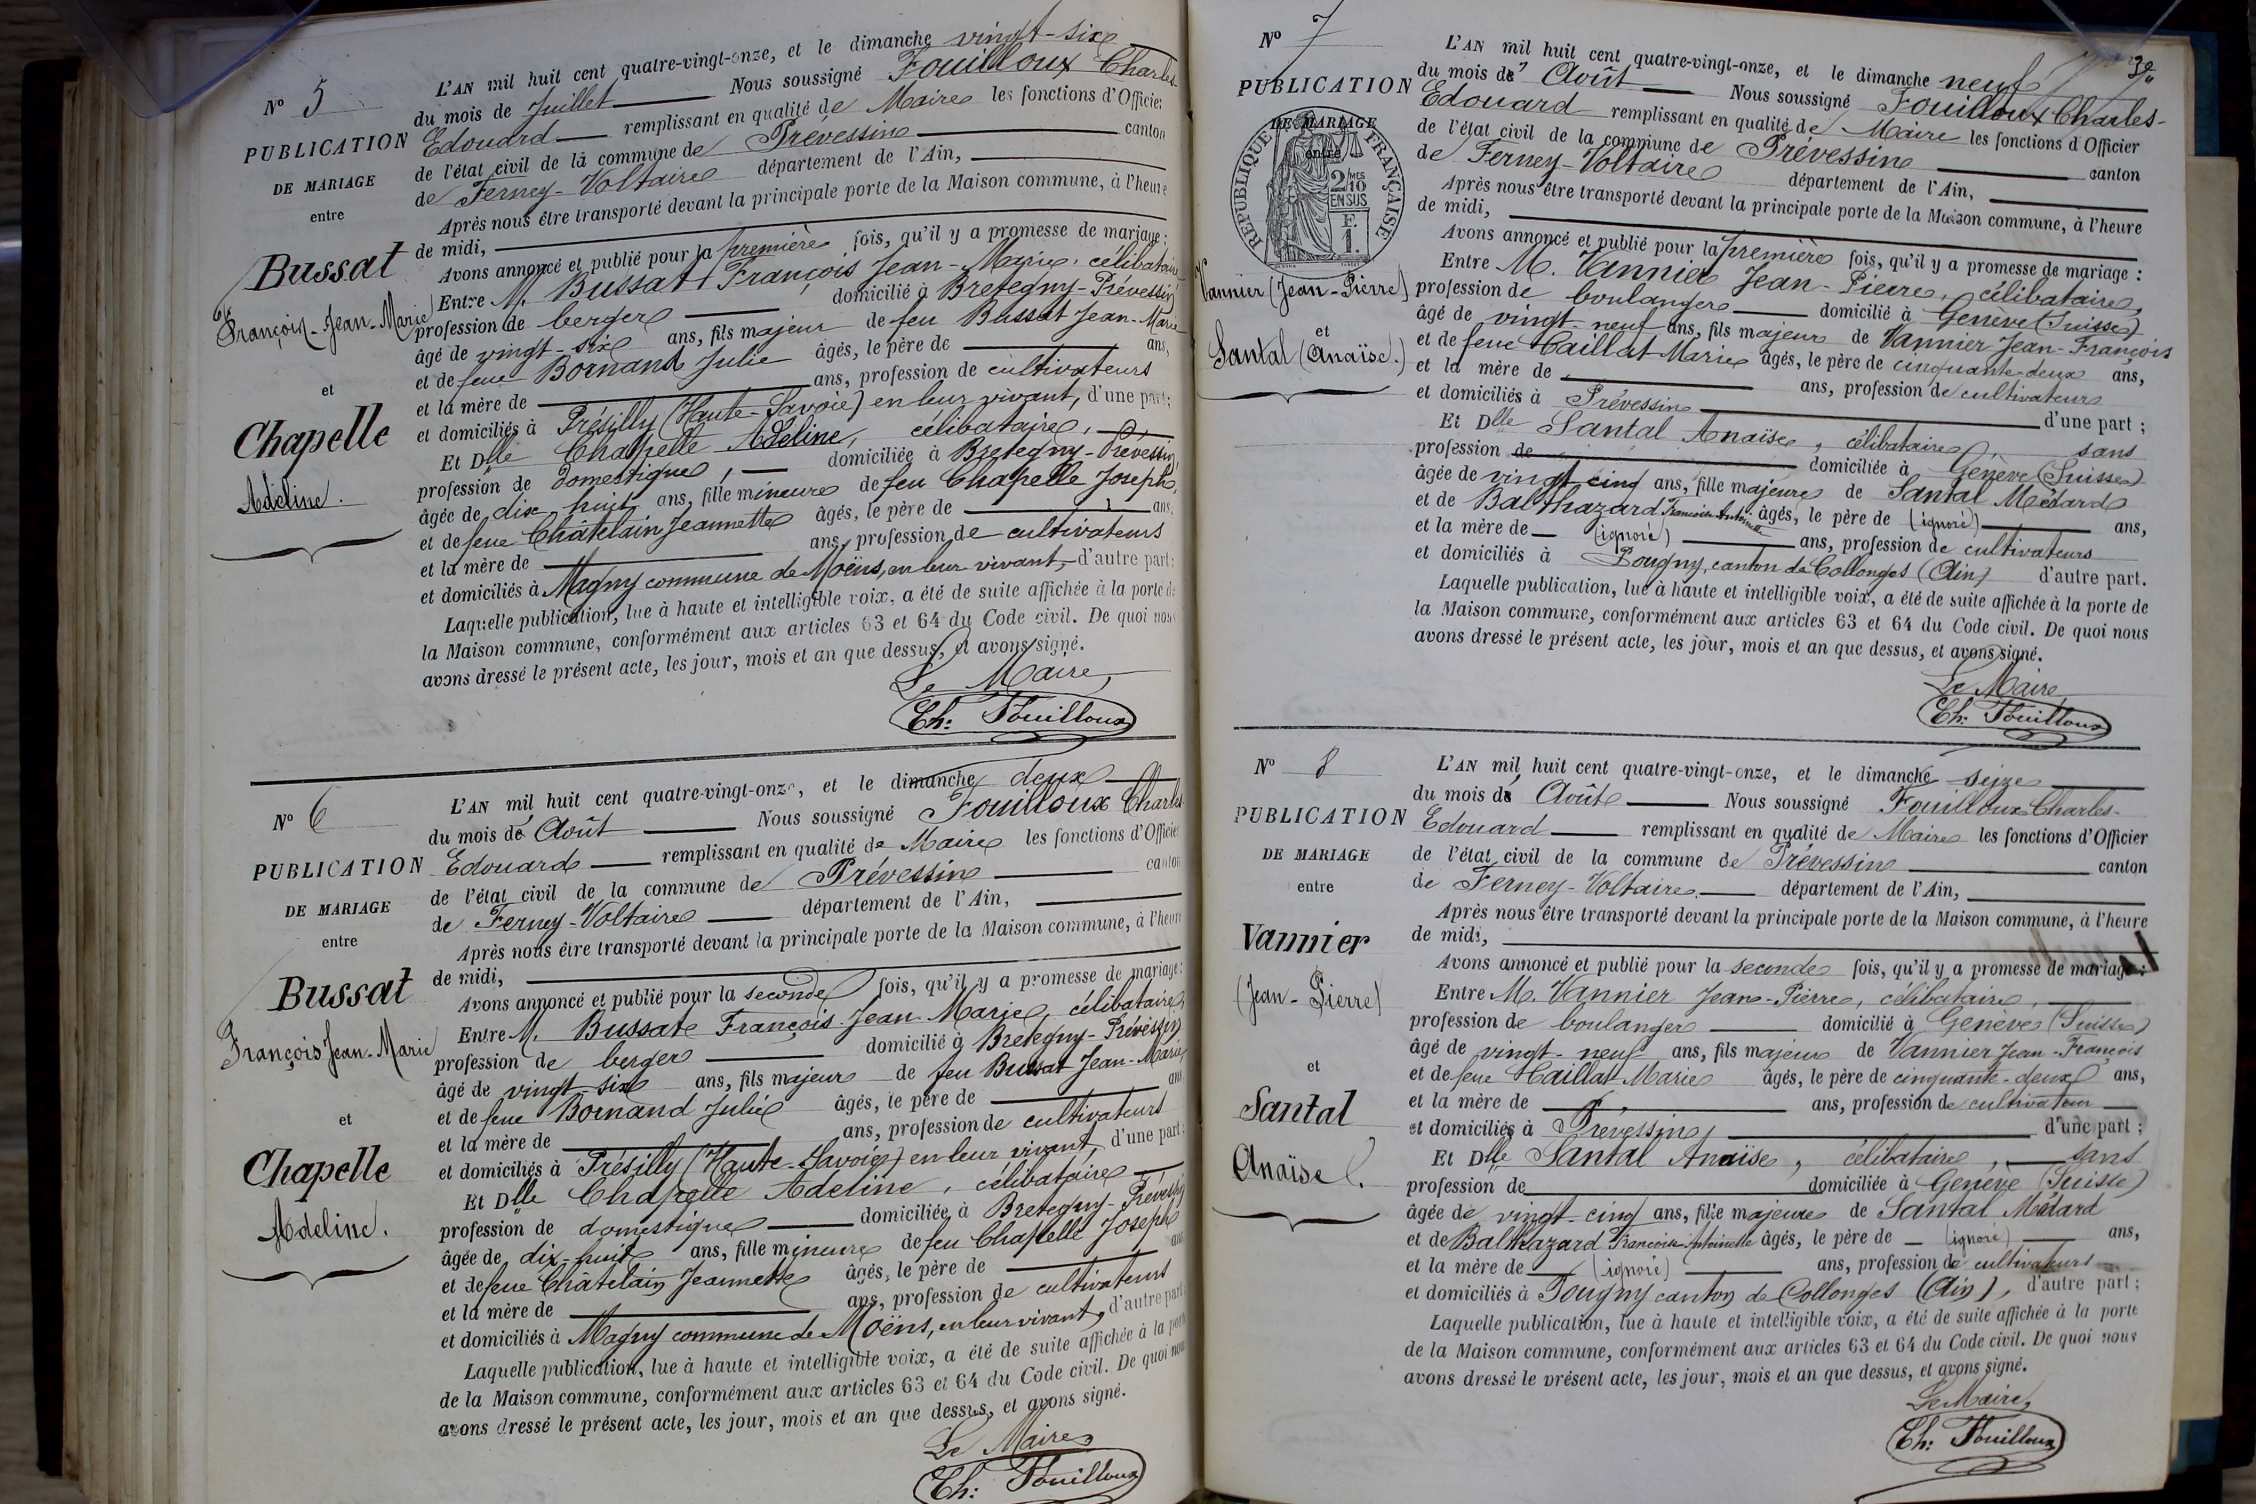 N° 5
PUBLICATION
DE MARIAGE
entre
Bussat
François-Jean-Marie
et
Chapelle
Adeline.
L'AN mil huit cent quatre-vingt-onze, et le dimanche vingt-six
du mois de Juillet Nous soussigné Fouilloux Charles-
Edouard remplissant en qualité de Maire les fonctions d'Officier
de l'état civil de la commune de Prévessin canton
de Ferney-Voltaire département de l'Ain,
Après nous être transporté devant la principale porte de la Maison commune, à l'heure
de midi,
Avons annoncé et publié pour la première fois, qu'il y a promesse de mariage:
Entre M. Bussat François Jean-Marie, célibataire,
profession de berger domicilié à Bretegny-Prévessin
âgé de vingt-six ans, fils majeur de feu Bussat Jean-Marie
et de feue Bornand Julie âgés, le père de ans,
et la mère de ans, profession de cultivateurs
et domiciliés à Présilly (Haute-Savoie) en leur vivant, d'une part;
Et Dlle Chapelle Adeline, célibataire,
profession de domestique, domiciliée à Bretegny-Prévessin,
âgée de dix-huit ans, fille mineure de feu Chapelle Joseph,
et de feue Châtelain Jeannette âgés, le père de ans,
et la mère de ans, profession de cultivateurs
et domiciliés à Magny commune de Moëns, en leur vivant, d'autre part:
Laquelle publication, lue à haute et intelligible voix, a été de suite affichée à la porte de
la Maison commune, conformément aux articles 63 et 64 du Code civil. De quoi nous
avons dressé le présent acte, les jour, mois et an que dessus, et avons signé.
Le Maire,
Ch: Fouilloux
N° 6
PUBLICATION
DE MARIAGE
entre
Bussat
François Jean-Marie
et
Chapelle
Adeline.
L'AN mil huit cent quatre-vingt-onze, et le dimanche deux
du mois de Août Nous soussigné Fouilloux Charles
Edouard remplissant en qualité de Maire les fonctions d'Officier
de l'état civil de la commune de Prévessin canton
de Ferney-Voltaire département de l'Ain,
Après nous être transporté devant la principale porte de la Maison commune, à l'heure
de midi,
Avons annoncé et publié pour la seconde fois, qu'il y a promesse de mariage:
Entre M. Bussat François Jean-Marie, célibataire,
profession de berger domicilié à Bretegny-Prévessin
âgé de vingt-six ans, fils majeur de feu Bussat Jean-Marie
et de feue Bornand Julie âgés, le père de ans
et la mère de ans, profession de cultivateurs
et domiciliés à Présilly (Haute-Savoie) en leur vivant, d'une part:
Et Dlle Chapelle Adeline, célibataire
profession de domestique domiciliée à Bretegny-Prévessin
âgée de dix-huit ans, fille mineure de feu Chapelle Joseph
et de feue Châtelain Jeannette âgés, le père de ans
et la mère de ans, profession de cultivateurs
et domiciliés à Magny commune de Moëns, en leur vivant, d'autre part
Laquelle publication, lue à haute et intelligible voix, a été de suite affichée à la porte
de la Maison commune, conformément aux articles 63 et 64 du Code civil. De quoi nous
avons dressé le présent acte, les jour, mois et an que dessus, et avons signé.
Le Maire
Ch: Fouilloux
N° 7
PUBLICATION
DE MARIAGE
entre
RÉPUBLIQUE FRANÇAISE
2/10MES
EN SUS
F.
1.
Vannier (Jean-Pierre)
et
Santal (Anaïse.)
L'AN mil huit cent quatre-vingt-onze, et le dimanche neuf
du mois d' Août Nous soussigné Fouilloux Charles-
Edouard remplissant en qualité de Maire les fonctions d'Officier
de l'état civil de la commune de Prévessin canton
de Ferney-Voltaire département de l'Ain,
Après nous être transporté devant la principale porte de la Maison commune, à l'heure
de midi,
Avons annoncé et publié pour la première fois, qu'il y a promesse de mariage:
Entre M. Vannier Jean-Pierre, célibataire,
profession de boulanger domicilié à Genève (Suisse)
âgé de vingt-neuf ans, fils majeur de Vannier Jean-François
et de feue Caillat Marie âgés, le père de cinquante-deux ans,
et la mère de ans, profession de cultivateurs
et domiciliés à Prévessin d'une part;
Et Dlle Santal Anaïse, célibataire, sans
profession de domiciliée à Genève (Suisse)
âgée de vingt-cinq ans, fille majeure de Santal Médard
et de Balthazard Françoise Antoinette âgés, le père de (ignoré) ans,
et la mère de (ignoré) ans, profession de cultivateurs
et domiciliés à Pougny, canton de Collonges (Ain) d'autre part.
Laquelle publication, lue à haute et intelligible voix, a été de suite affichée à la porte de
la Maison commune, conformément aux articles 63 et 64 du Code civil. De quoi nous
avons dressé le présent acte, les jour, mois et an que dessus, et avons signé.
Le Maire
Ch: Fouilloux
N° 8
PUBLICATION
DE MARIAGE
entre
Vannier
(Jean-Pierre)
et
Santal
Anaïse.
L'AN mil huit cent quatre-vingt-onze, et le dimanche seize
du mois d' Août Nous soussigné Fouilloux Charles-
Edouard remplissant en qualité de Maire les fonctions d'Officier
de l'état civil de la commune de Prévessin canton
de Ferney-Voltaire département de l'Ain,
Après nous être transporté devant la principale porte de la Maison commune, à l'heure
de midi,
Avons annoncé et publié pour la seconde fois, qu'il y a promesse de mariage:
Entre M. Vannier Jean-Pierre, célibataire,
profession de boulanger domicilié à Genève (Suisse)
âgé de vingt-neuf ans, fils majeur de Vannier Jean-François
et de feue Caillat Marie âgés, le père de cinquante-deux ans,
et la mère de ans, profession de cultivateur
et domiciliés à Prévessin, d'une part;
Et Dlle Santal Anaïse, célibataire, sans
profession de domiciliée à Genève (Suisse)
âgée de vingt-cinq ans, fille majeure de Santal Médard
et de Balthazard Françoise Antoinette âgés, le père de (ignoré) ans,
et la mère de (ignoré) ans, profession de cultivateurs
et domiciliés à Pougny canton de Collonges (Ain), d'autre part;
Laquelle publication, lue à haute et intelligible voix, a été de suite affichée à la porte
de la Maison commune, conformément aux articles 63 et 64 du Code civil. De quoi nous
avons dressé le présent acte, les jour, mois et an que dessus, et avons signé.
Le Maire,
Ch: Fouilloux